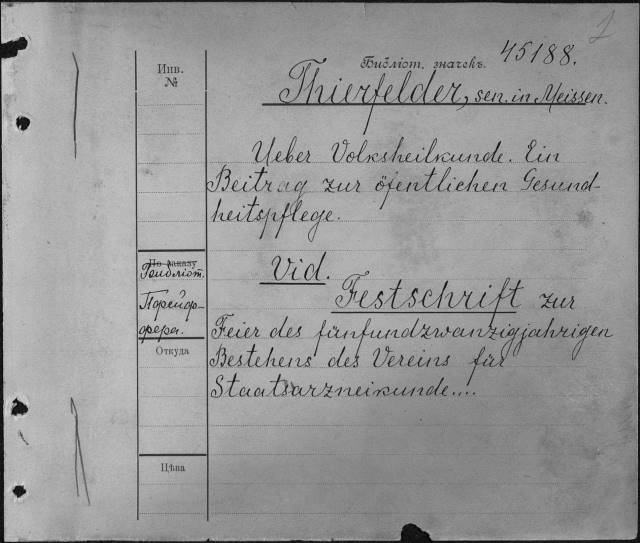 2
Инв.
№
Библіот. значекъ. 45188.
Thierfelder, sen. in Meissen.
Ueber Volksheilkunde. Ein
Beitrag zur öfentlichen Gesund-
heitspflege.
По заказу
Vid.
Festschrift zur
Feier des fünfundzwanzigjahrigen
Bestehens des Vereins für
Staatsarzneikunde....
Откуда
Цѣна